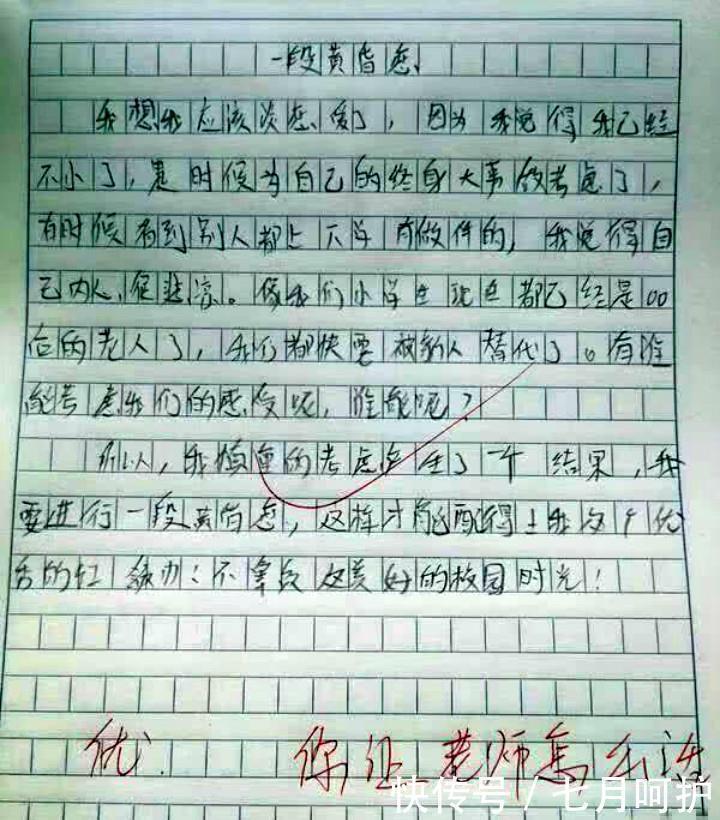 一段黄昏恋
我想我应该谈恋爱了，因为我觉得我已经
不小了，是时候为自己的终身大事做考虑了，
有时候看到别人都上下学有做伴的，我觉得自
己内人很悲凉。像我们小学生现在都已经是00
后的老人了，我们都快要被新人替代了。有谁
能考虑我们的感受呢，谁能呢？
所以，我慎重的考虑产生了一个结果，我
要进行一段黄昏恋，这样才能配得上我这个优
秀的红领巾！不辜负这美好的校园时光！
优
你让老师怎么活
快传号／七月呵护